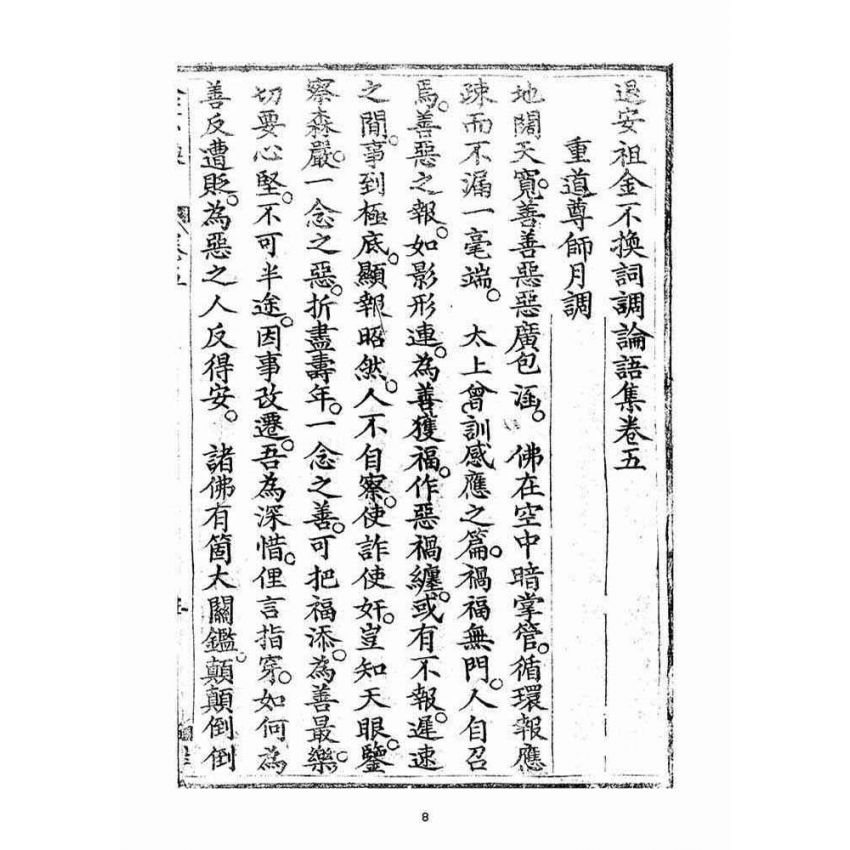 退安祖金不換詞調論語集卷五
重道尊師月調
地闊天寬。善善惡惡廣包涵。佛在空中暗掌管。循環報應
疎而不漏一毫端。太上曾訓感應之篇。禍福無門。人自召
焉。善惡之報。如影形連。為善獲福。作惡禍纏。或有不報。遲速
之間。事到極底。顯報昭然。人不自察。使詐使奸。豈知天眼。鑒
察森嚴。一念之惡。折盡壽年。一念之善。可把福添。為善最樂。
切要心堅。不可半途。因事改遷。吾為深惜。俚言指穿。如何為
善反遭貶。為惡之人反得安。諸佛有箇大關鑑。顛顛倒倒
8